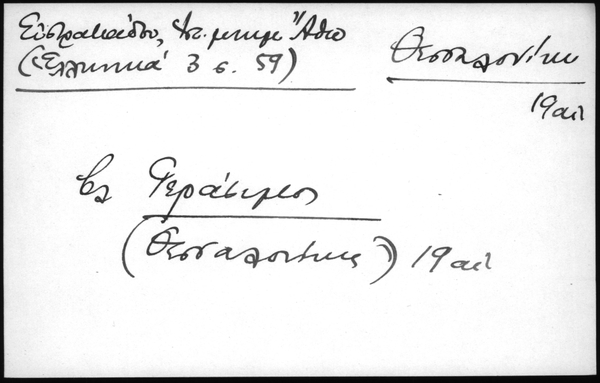 Εὐστρατιάδου, Ἁγ. μνημ Ἄθω
(Ἑλληνικά 3 σ. 59)
Θεσσαλονίκη
19 αἰ
βλ Γεράσιμος
(Θεσσαλονίκης) 19 αἰ